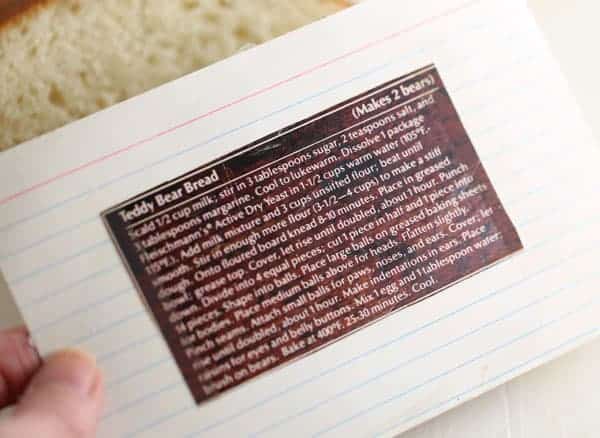 Teddy Bear Bread (Makes 2 bears)
Scald 1/2 cup milk; stir in 3 tablespoons sugar, 2 teaspoons salt, and
3 tablespoons margarine. Cool to lukewarm. Dissolve 1 package
Fleischmann's® Active Dry Yeast in 1-1/2 cups warm water (105°F.-
115°F.). Add milk mixture and 3 cups unsifted flour; beat until
smooth. Stir in enough more flour (3-1/2—4 cups) to make a stiff
dough. Onto floured board knead 8-10 minutes. Place in greased
bowl; grease top. Cover; let rise until doubled, about 1 hour. Punch
down. Divide into 4 equal pieces; cut 1 piece in half and 1 piece into
pieces. Shape into balls. Place large balls on greased baking sheets
for bodies. Place medium balls above for heads. Flatten slightly.
Pinch seams. Attach small balls for paws, noses, and ears. Cover; let
rise until doubled, about 1 hour. Make indentations in ears. Place
raisins for eyes and belly buttons. Mix 1 egg and 1 tablespoon water;
brush on bears. Bake at 400°F. 25-30 minutes. Cool.